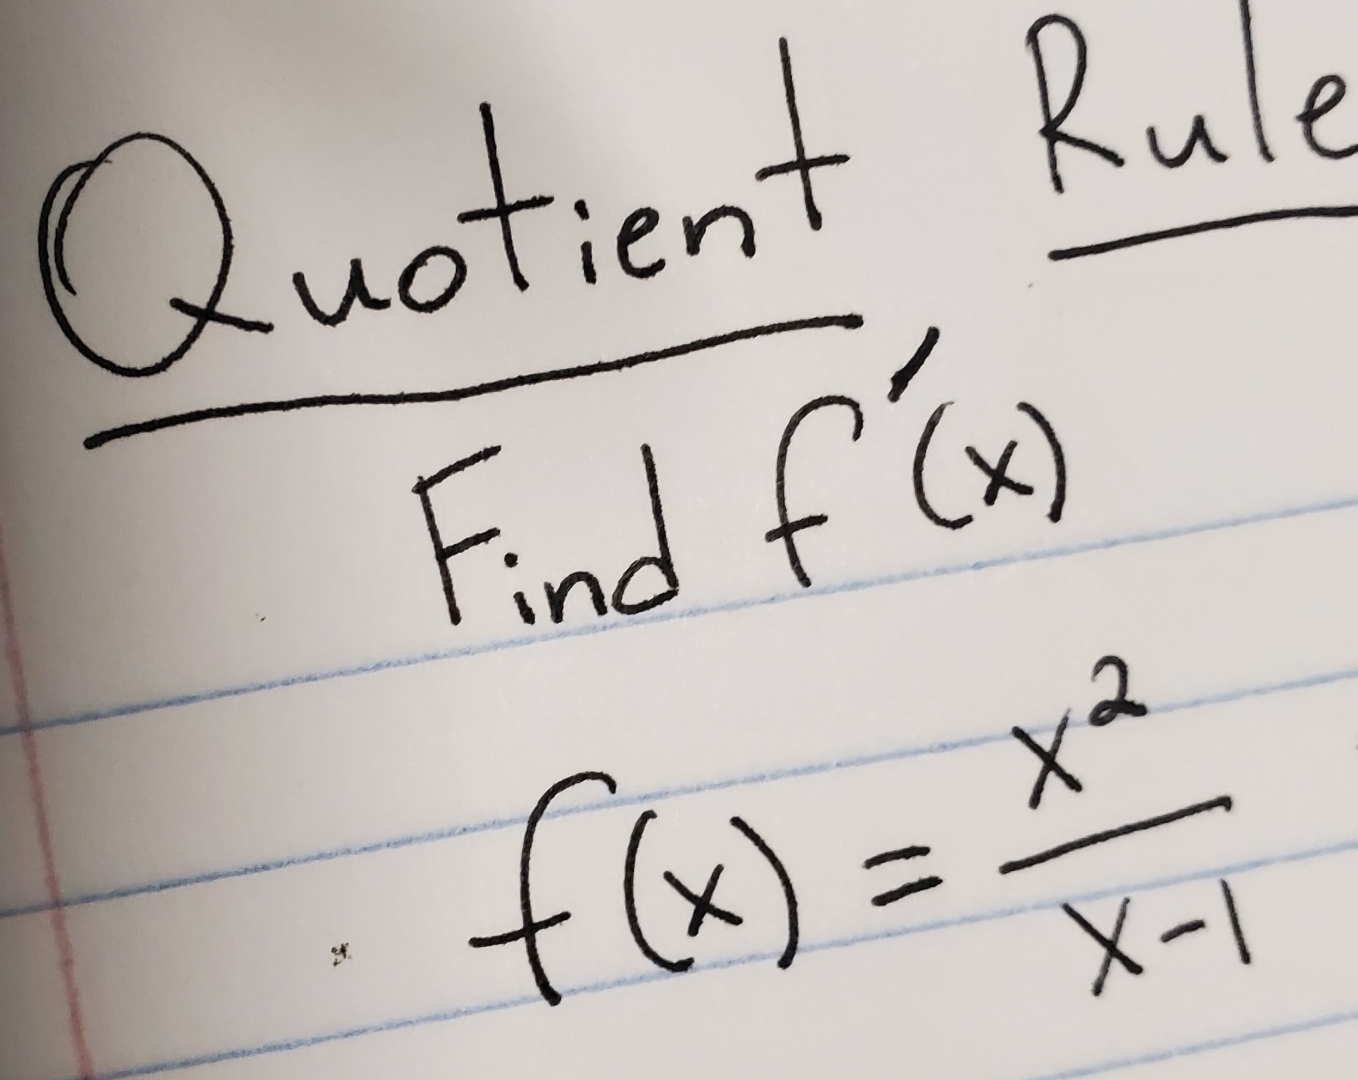 Quotient Rule
Find f'(x)
f(x) = x²/(x-1)